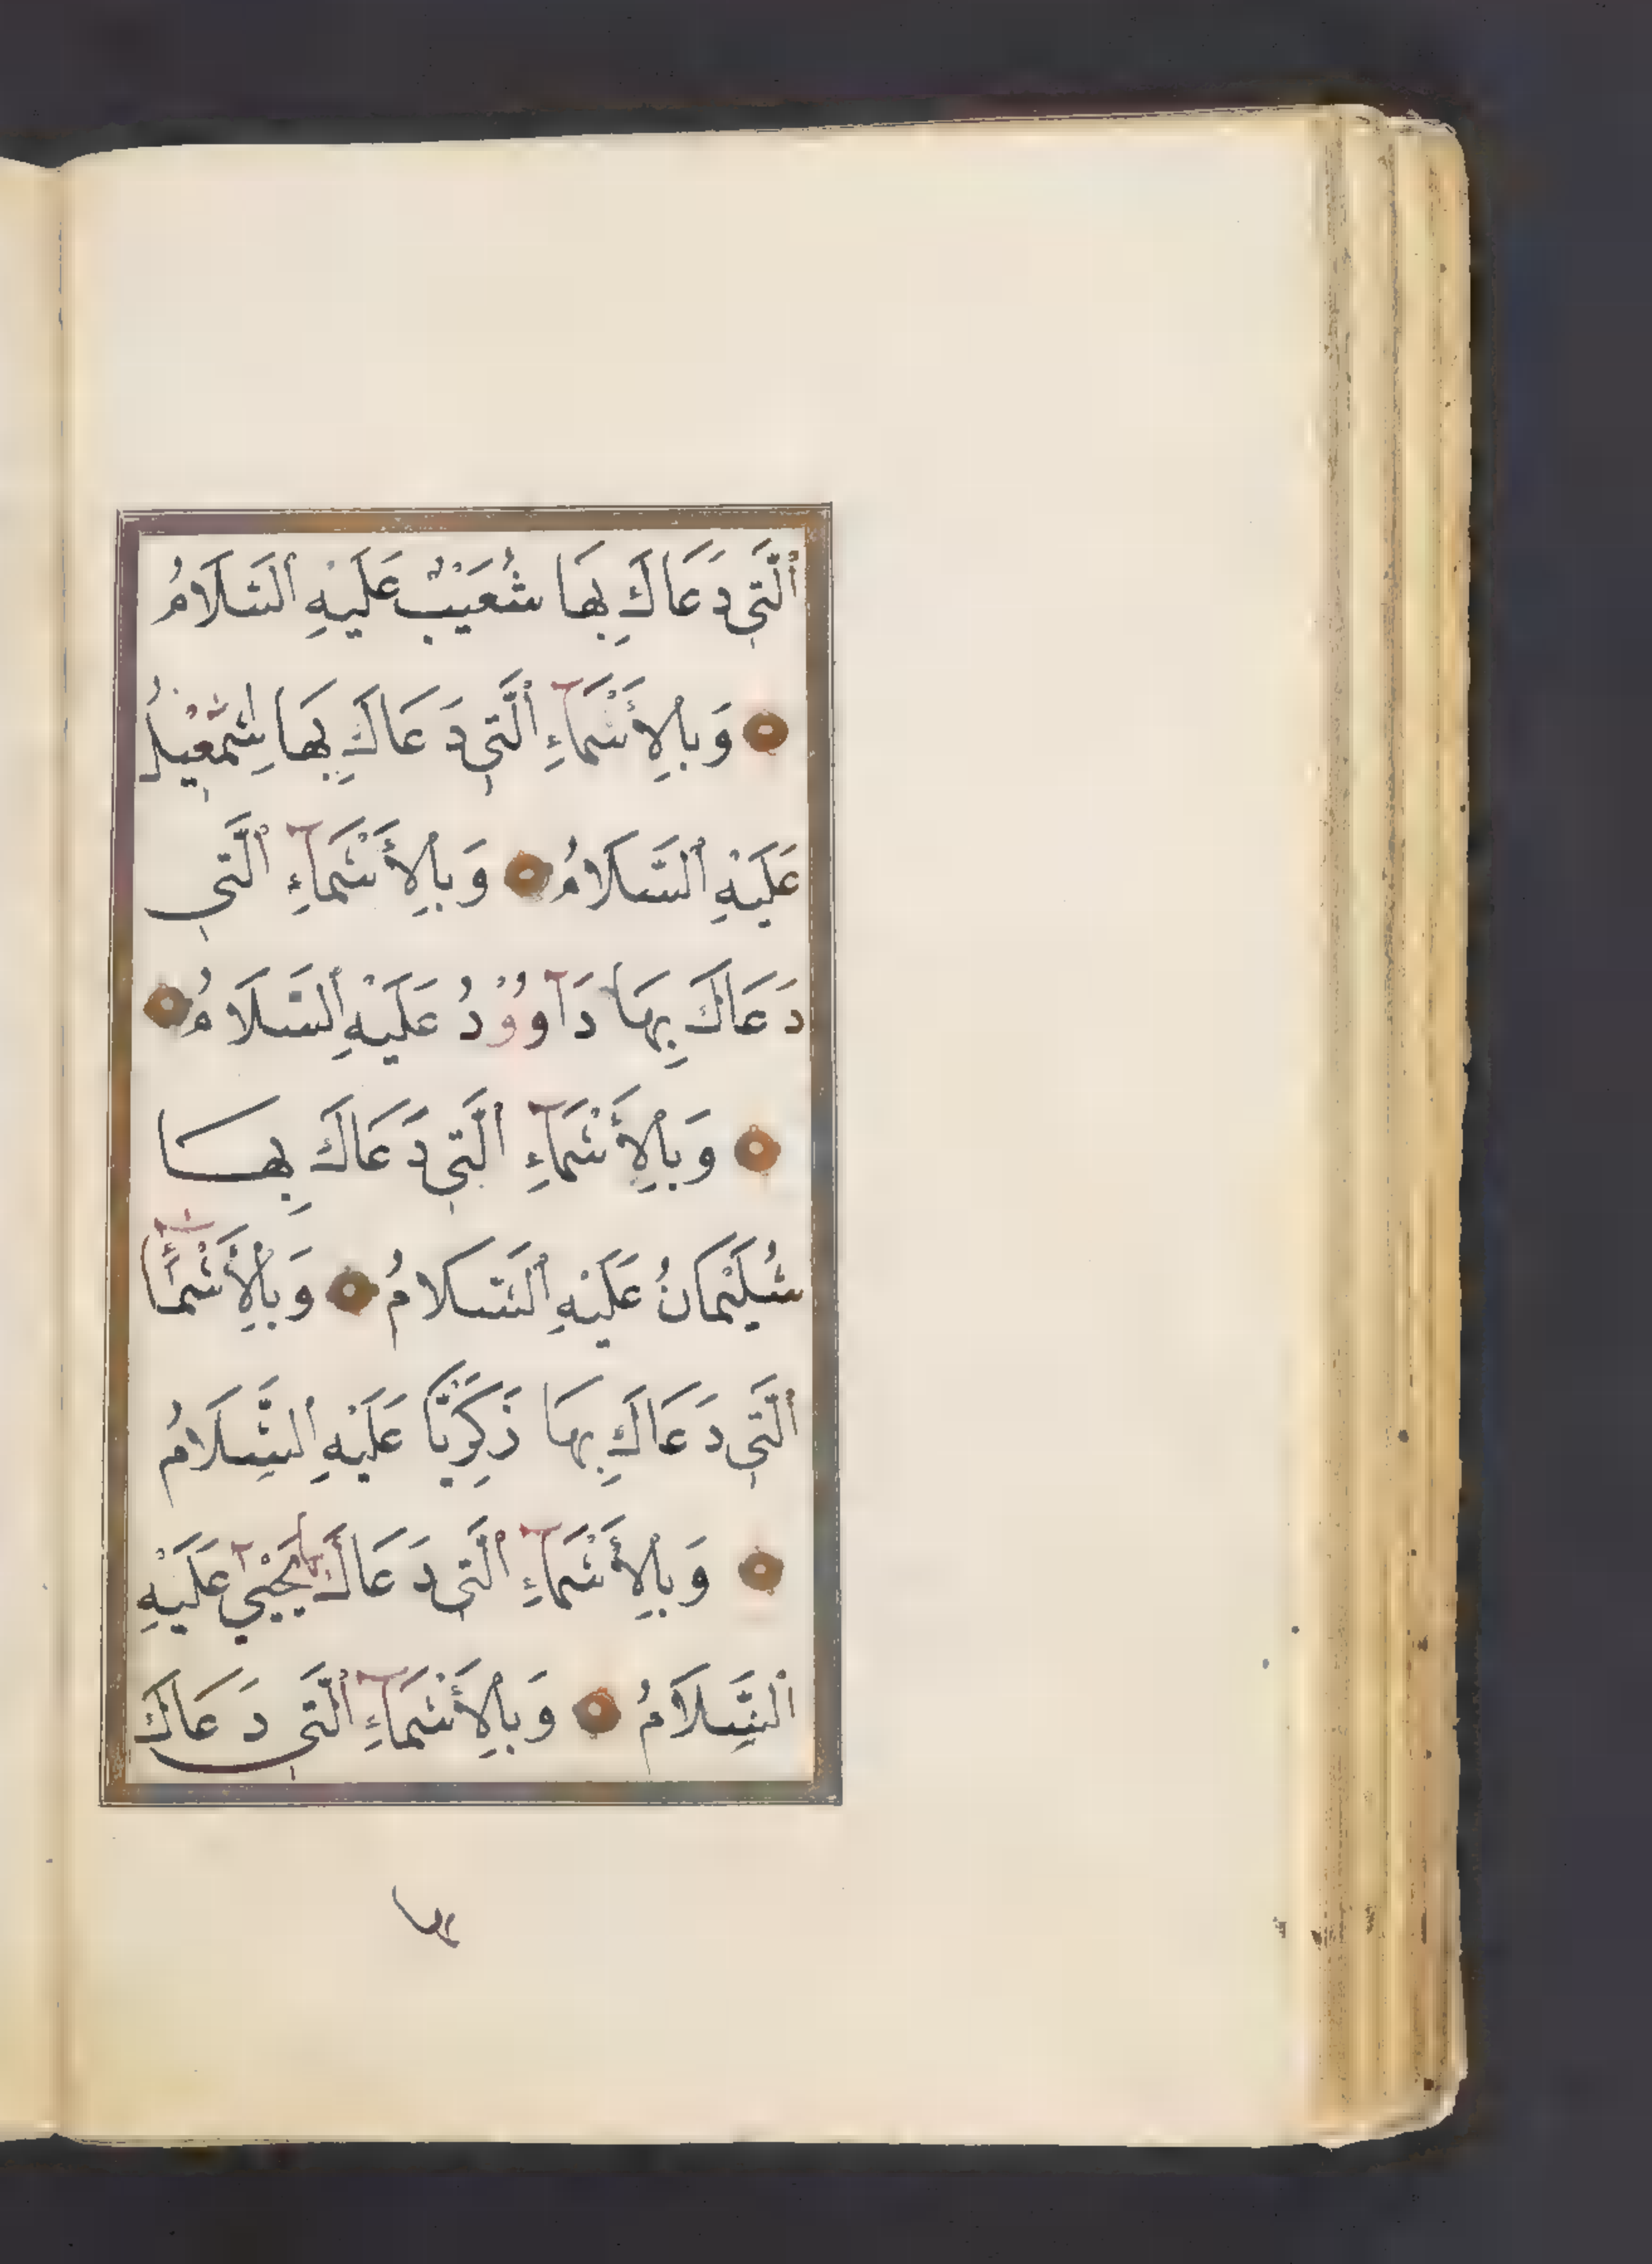 ٱلَّتِي دَعَاكَ بِهَا شُعَيْبٌ عَلَيْهِ ٱلسَّلَامُ
وَبِالْأَسْمَآءِ ٱلَّتِي دَعَاكَ بِهَا إِسْمَٰعِيلُ
عَلَيْهِ ٱلسَّلَامُ وَبِالْأَسْمَآءِ ٱلَّتِي
دَعَاكَ بِهَا دَآوُودُ عَلَيْهِ ٱلسَّلَامُ
وَبِالْأَسْمَآءِ ٱلَّتِي دَعَاكَ بِهَا
سُلَيْمَانُ عَلَيْهِ ٱلسَّلَامُ وَبِالْأَسْمَآءِ
ٱلَّتِي دَعَاكَ بِهَا زَكَرِيَّا عَلَيْهِ ٱلسَّلَامُ
وَبِالْأَسْمَآءِ ٱلَّتِي دَعَاكَ بِهَا يَحْيَى عَلَيْهِ
ٱلسَّلَامُ وَبِالْأَسْمَآءِ ٱلَّتِي دَعَاكَ
بها